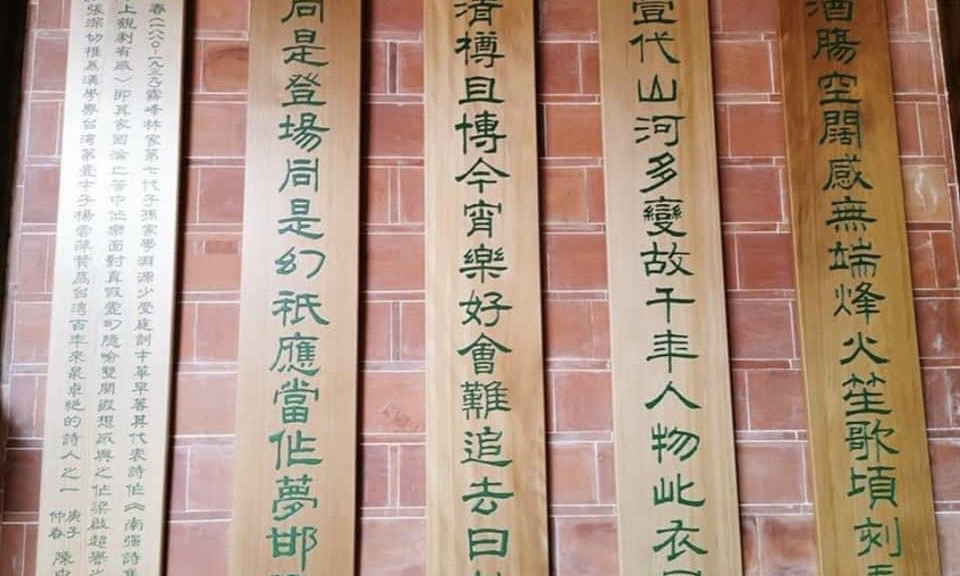 酒腸空闊感無端烽火笙歌頃刻
壹代山河多變故千年人物此衣
清樽且博今宵樂好會難追去日
同是登場同是幻祇應當作夢邯
春(一八八〇-一九三九)霧峰林家第七代子孫家學淵源少受庭訓才華早著其代表詩作《南強詩集
上觀劇有感〉即其家國淪亡苦中作樂面對真假虛幻隱喻雙關遐想感興之作梁啟超譽之
張深切推為漢學界台灣第壹才子楊雲萍贊為台灣百年來最卓絕的詩人之一
庚子
仲春 陳